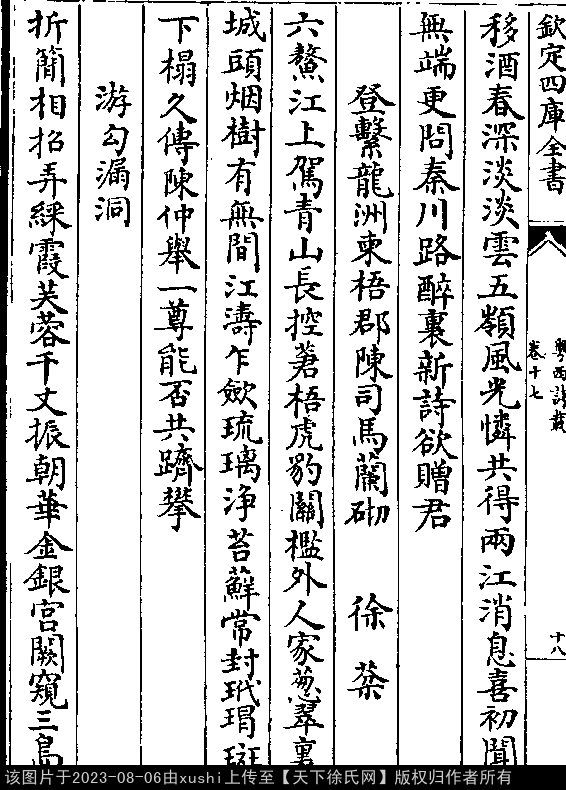 欽定四庫全書
粵西詩載
卷十七
十八
移酒春深淡淡雲五嶺風光憐共得兩江消息喜初聞
無端更問秦川路醉裏新詩欲贈君
登繫龍洲柬梧郡陳司馬蘭砌 徐棻
六鰲江上駕青山長控蒼梧虎豹關檻外人家葱翠裏
城頭烟樹有無間江濤乍歛琉璃浄苔蘚常封玳瑁斑
下榻久傳陳仲舉一尊能否共躋攀
游勾漏洞
折簡相招弄綵霞芙蓉千丈振朝華金銀宫闕窺三島
该图片于2023-08-06由xushi上传至【天下徐氏网】版权归作者所有